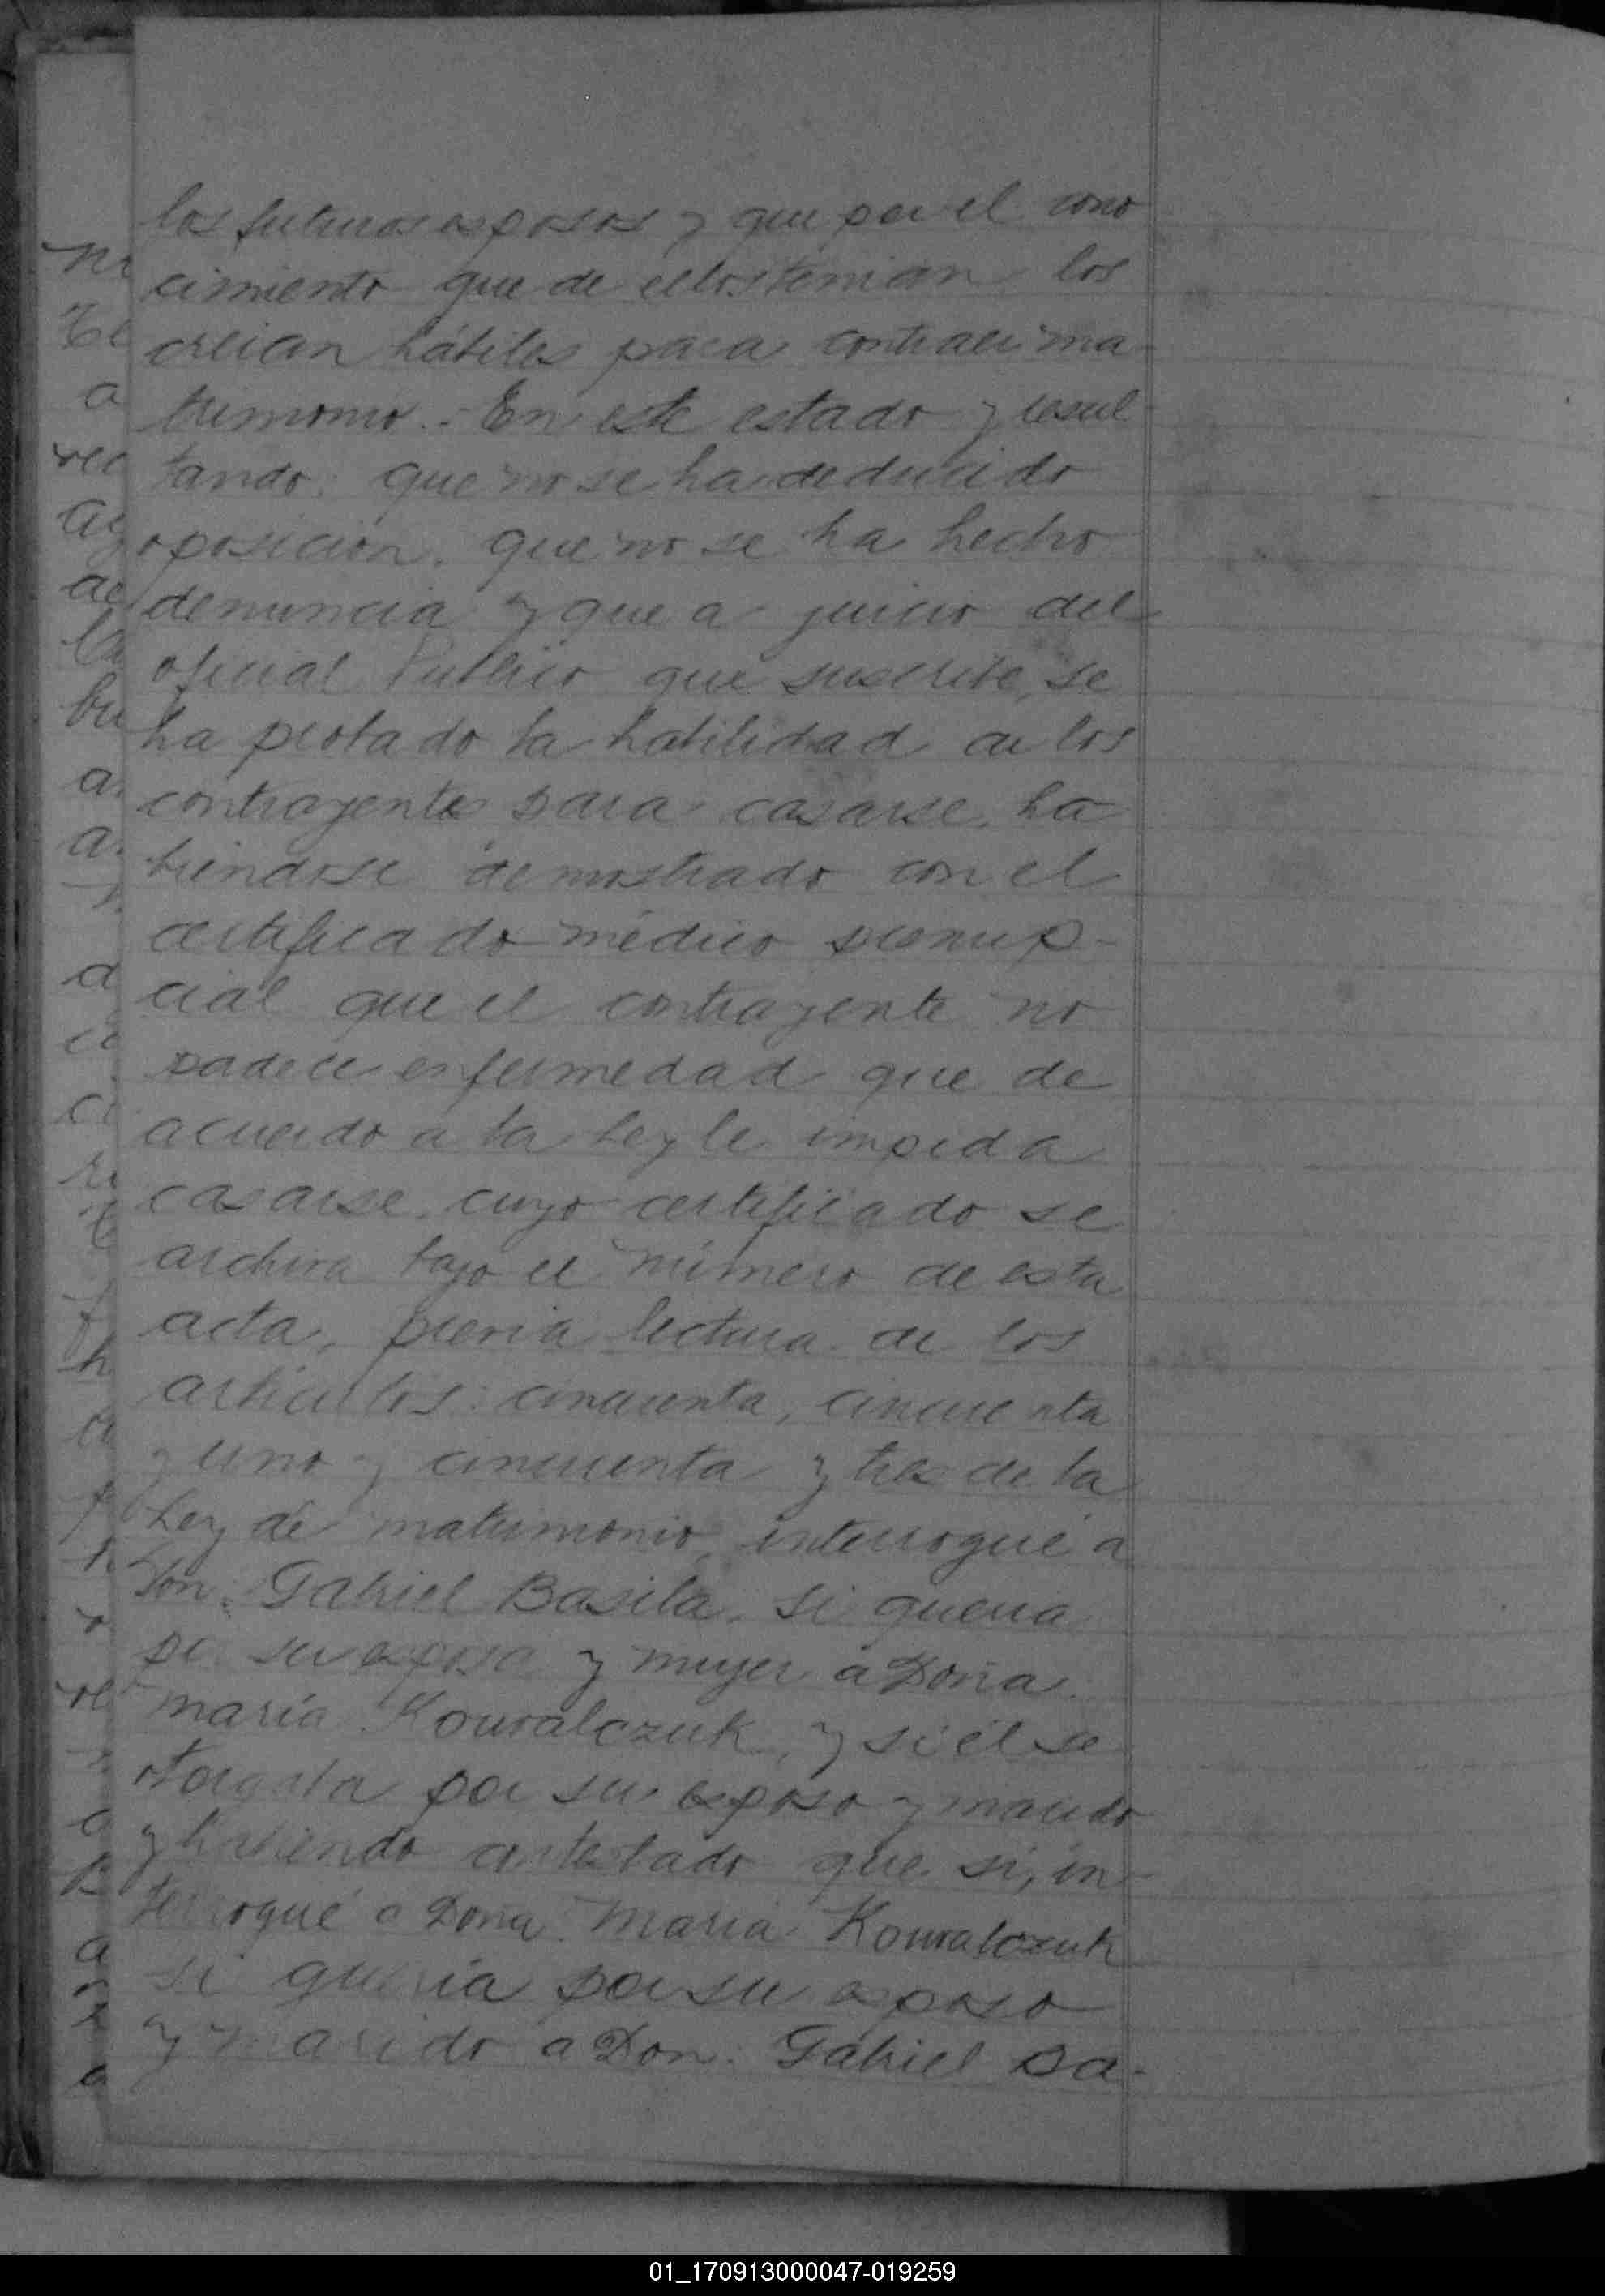 los futuros esposos y que por el cono
cimiento que de ellos tenian los
creian hábiles para contraer ma-
trimonio.- En este estado y resul-
tando: que no se ha deducido
oposición, que no se ha hecho
denuncia y que a juicio del
oficial Publico que suscribe, se
ha probado la habilidad de los
contrayentes para casarse, ha-
biendose demostrado con el
certificado médico prenup-
cial que el contrayente no
padece enfermedad que de
acuerdo a la Ley le impida
casarse, cuyo certificado se
archiva bajo el número de esta
acta, previa lectura de los
articulos: cincuenta, cincuenta
y uno y cincuenta y tres de la
Ley de matrimonio, interrogué a
Don. Gabriel Basila, si queria
por su esposa y mujer a Doña.
maría Kowalczuk, y si él se
otorgaba por su esposo y marido
y habiendo contestado que sí, in-
terrogué a Doña. Maria Kowalczuk
si queria por su esposo
y marido a Don. Gabriel Ba-
01_170913000047-019259